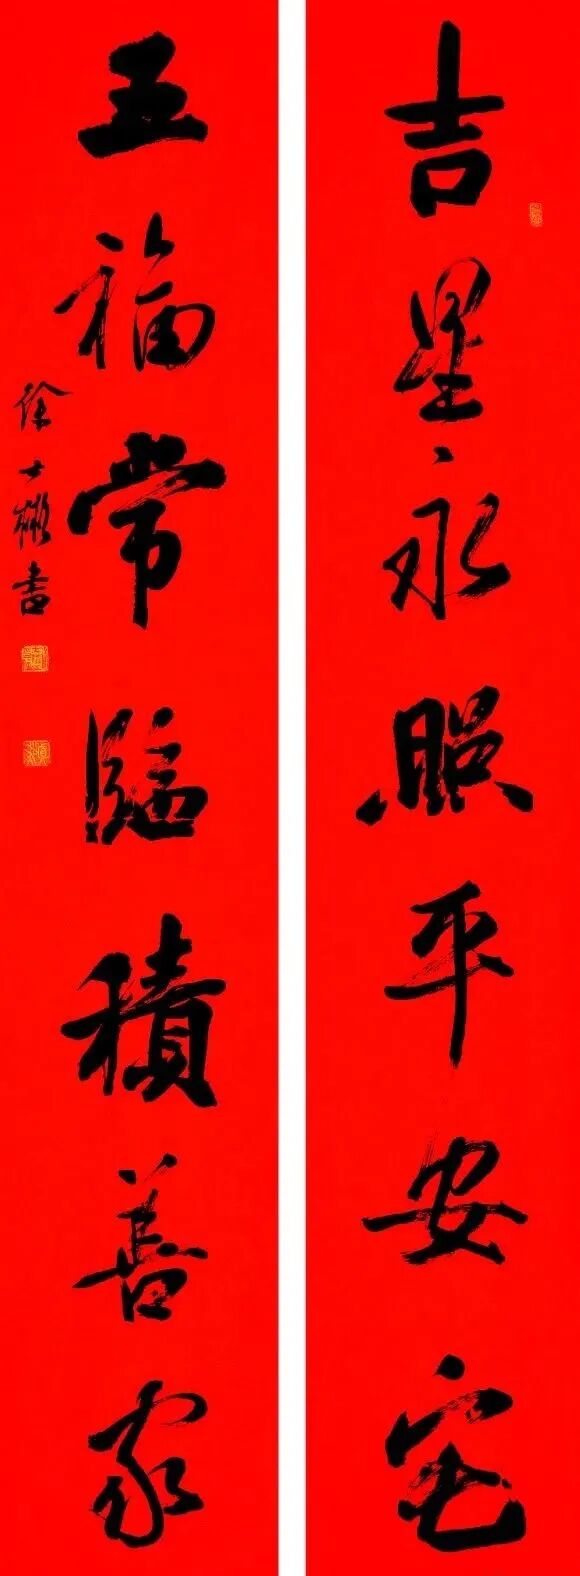 吉星永照平安宅
五福常臨積善家
徐士彬書